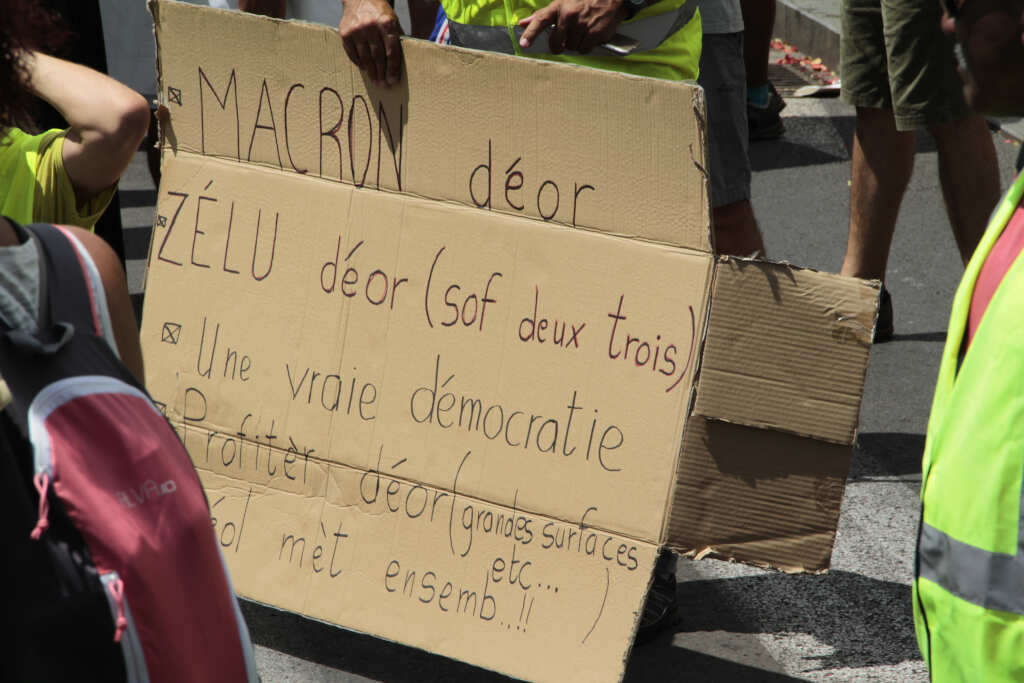 MACRON déor
ZÉLU déor (sof deux trois)
Une vraie démocratie
Profitèr déor (grandes surfaces
etc...)
mèt ensemb..!!